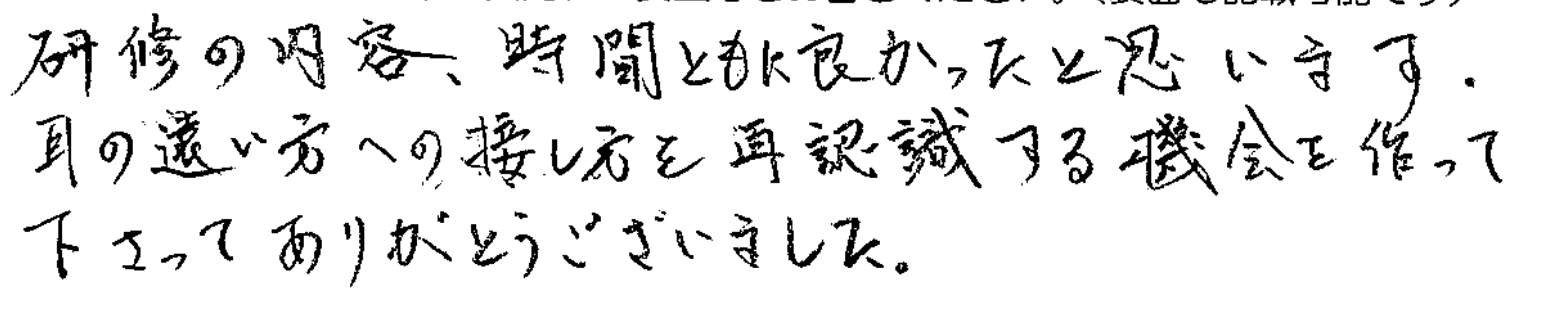 研修の内容、時間ともに良かったと思います.
耳の遠い方への接し方を再認識する機会を作って
下さってありがとうございました。